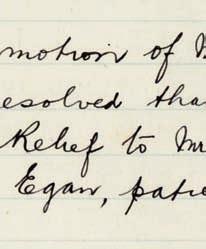 motion of M
esolved tha
Relief to Mr
Egan, patie